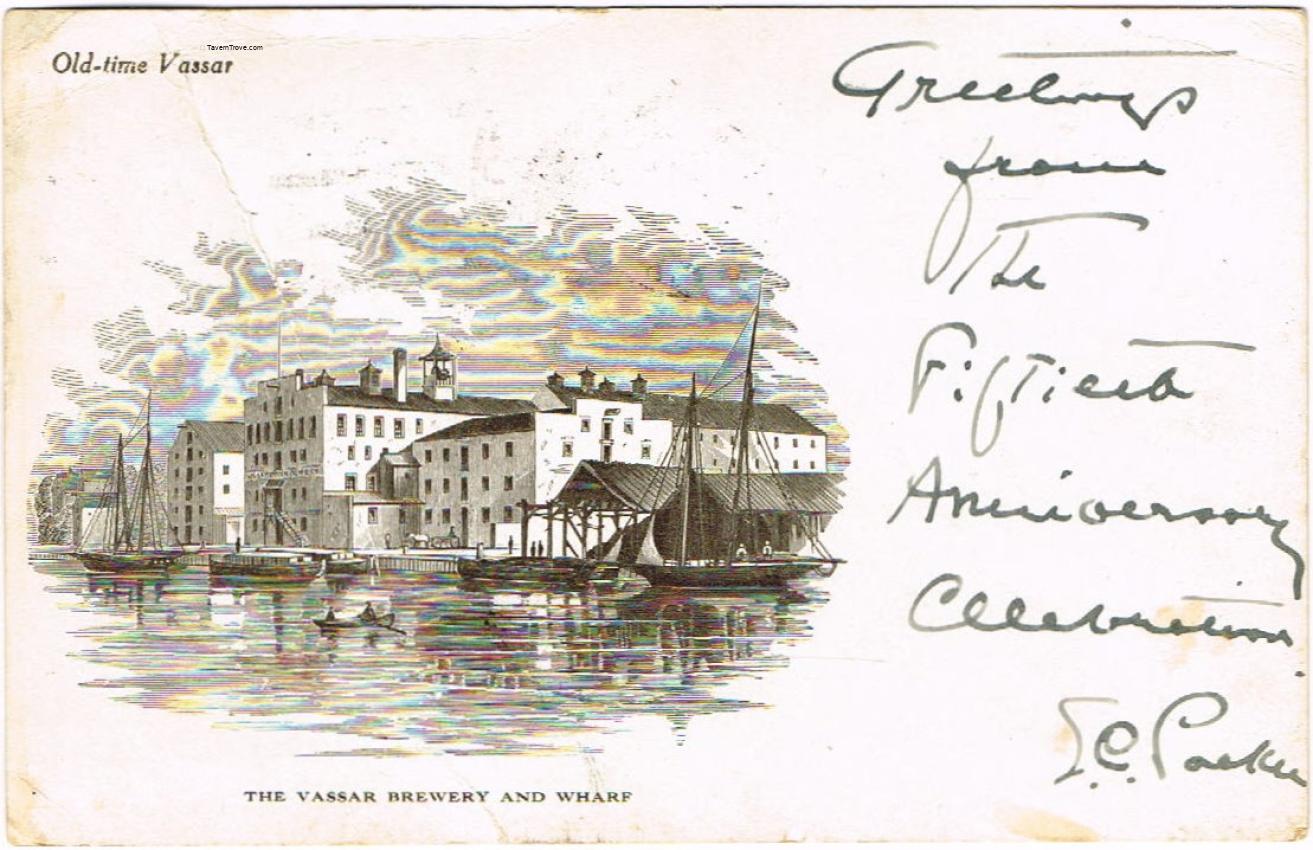 TavernTrove.com
Old-time Vassar
Greetings
from
The
Fiftieth
Anniversary
Celebration
THE VASSAR BREWERY AND WHARF